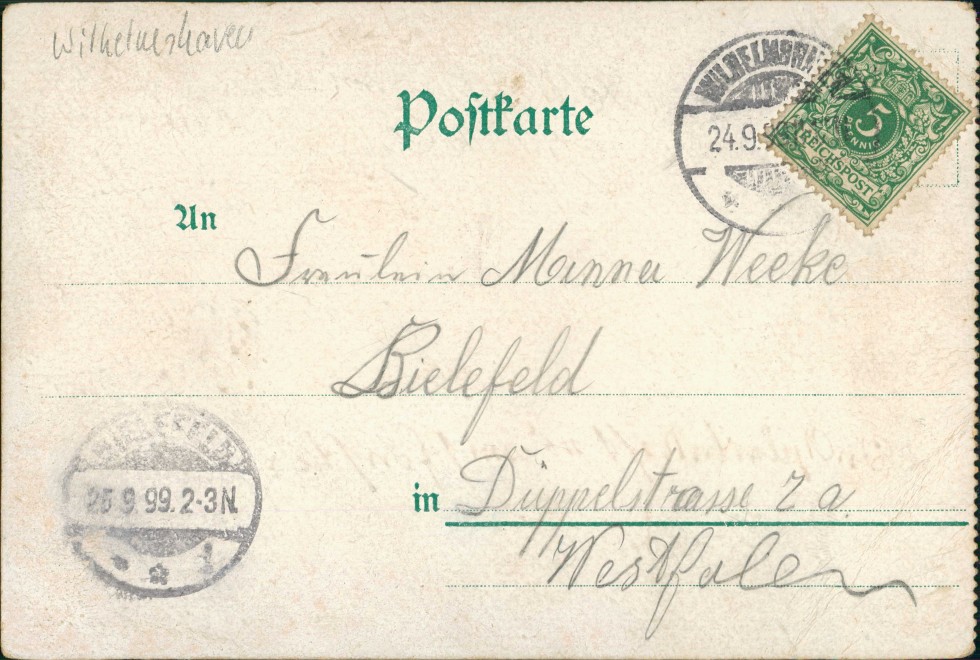 Wilhelmshaven
Postkarte
WILHELMSHAVEN
24.9.99
5
PFENNIG
REICHSPOST
An
Fräulein Manna Weeke
Bielefeld
BIELEFELD
25.9.99.2-3N.
1
in Düppelstrasse 7 a.
Westfalen